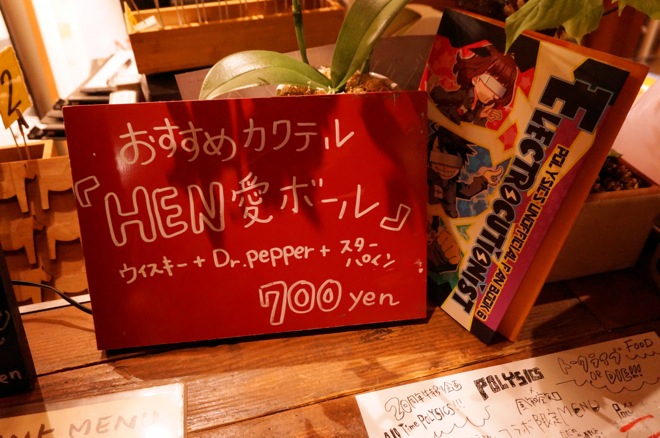 おすすめカクテル
『HEN愛ボール』
ウィスキー + Dr.pepper + スターパイン
700 yen
ELECTROCUTIONIST
POLYSICS UNOFFICIAL FAN BOOK 6
2
20周年
All Time POLYSICS!!!
POLYSICS
コラボ限定MENU
トークライブ FOOD
MENU
en